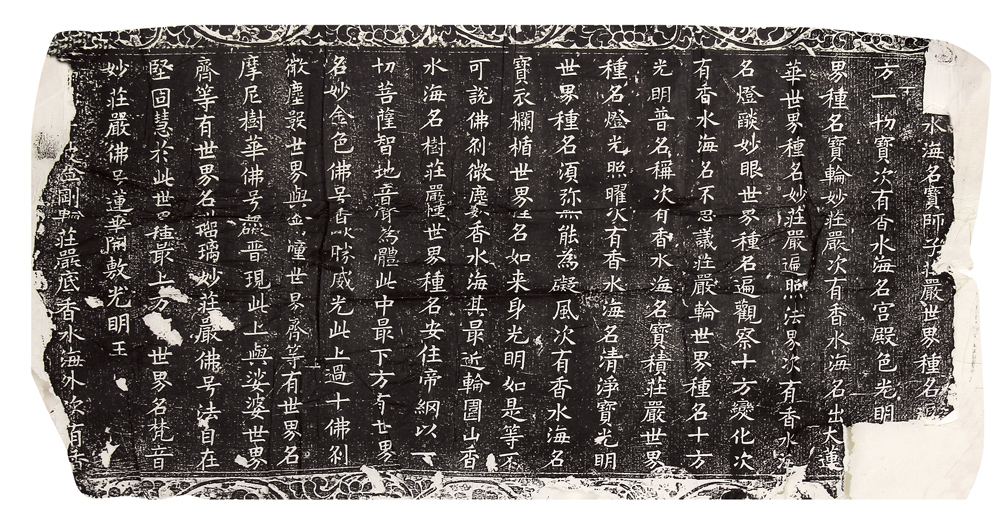 水海名寶師子莊嚴世界種名
方一切寶次有香水海名宮殿色光明
界種名寶輪妙莊嚴次有香水海名出大蓮
華世界種名妙莊嚴遍照法界次有香水
名燈燄妙眼世界種名遍觀察十方變化次
有香水海名不思議莊嚴輪世界種名十方
光明普名稱次有香水海名寶積莊嚴世界
種名燈光照曜次有香水海名清淨寶光明
世界種名須弥無能為礙風次有香水海名
寶衣欄楯世界種名如来身光明如是等不
可說佛刹微塵數香水海其最近輪圍山香
水海名樹莊嚴幢世界種名安住帝網以一
切菩薩智地音聲為體此中最下方有世界
名妙金色佛号香燄勝威光此上過十佛刹
微塵數世界與金幢世界齊等有世界名
摩尼樹華佛号普現此上與娑婆世界
齊等有世界名瑠璃妙莊嚴佛号法自在
堅固慧於此世界種最上方世界名梵音
妙莊嚴佛号蓮華開敷光明王
金剛輪莊嚴底香水海外次有香